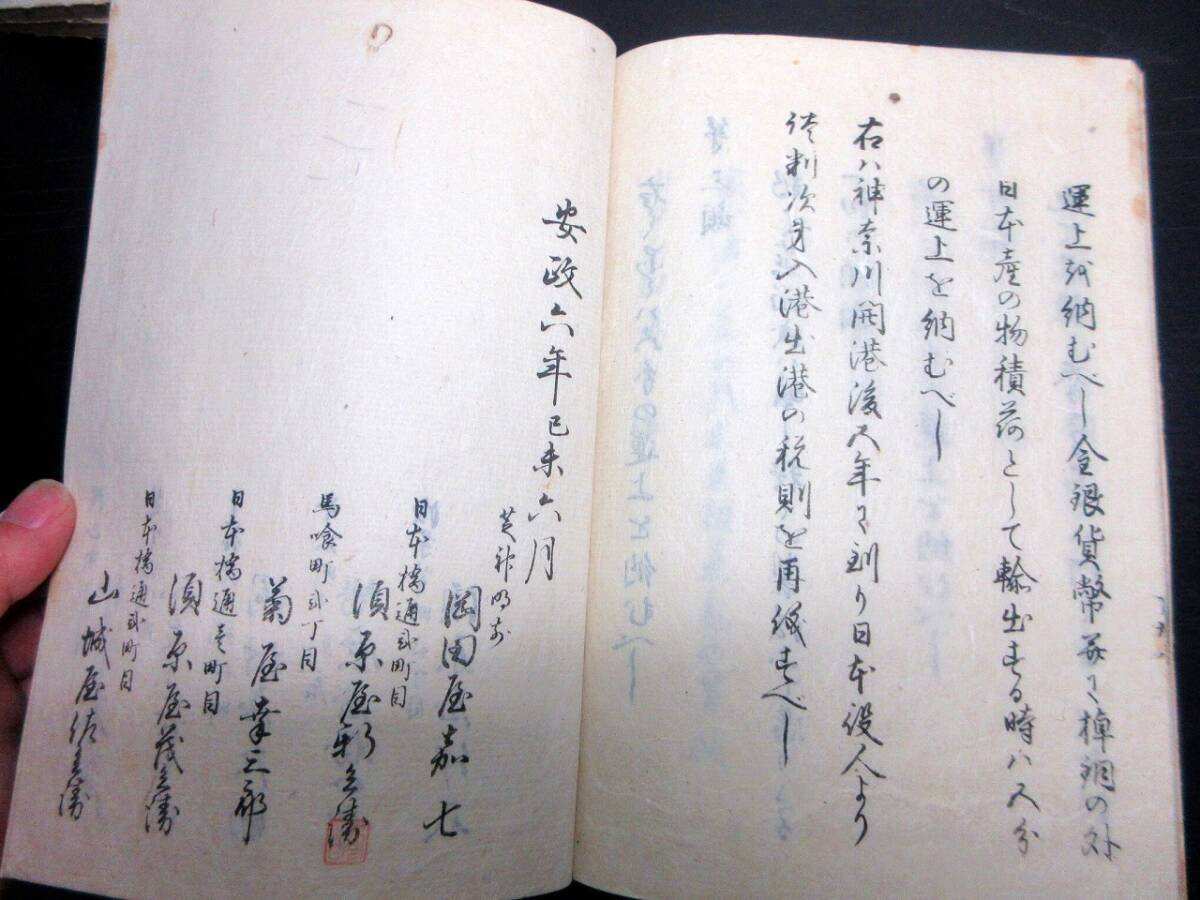 運上を納むべし金銀貨幣并に棹銅の外
日本産の物積荷として輸出する時ハ五分
の運上を納むべし
右ハ神奈川開港後五年に到り日本役人より
談判次第入港出港の税則を再議すべし
安政六年己未六月
芝神明前
岡田屋嘉七
日本橋通弐町目
須原屋新兵衛
馬喰町弐丁目
菊屋幸三郎
日本橋通壱町目
須原屋茂兵衛
日本橋通弐町目
山城屋佐兵衛